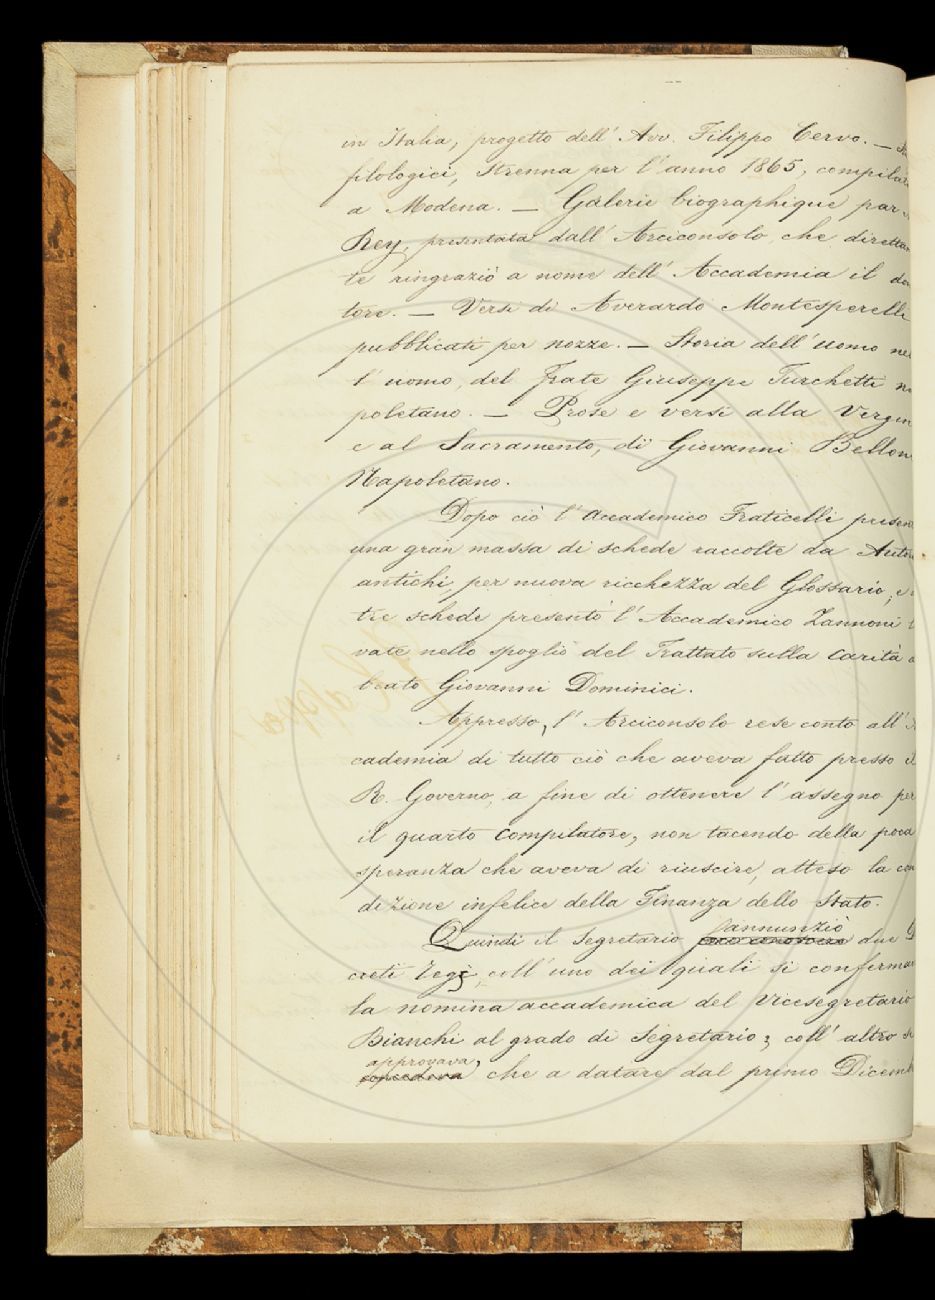 in Italia, progetto dell' Avv. Filippo Cervo. —
filologici, Strenna per l'anno 1865, compilat
a Modena. — Galerie biographique par
Rey, presentata dall' Arciconsolo, che diretta
te ringraziò a nome dell' Accademia il do
tore. — Versi di Averardo Montesperelli
pubblicati per nozze. — Storia dell' uomo ne
l' uomo, del frate Giuseppe Turchetti n
poletano. — Prose e versi alla Vergin
e al Sacramento, di Giovanni Bellon
Napoletano.
Dopo ciò l' Accademico Fraticelli presen
una gran massa di schede raccolte da Autor
antichi, per nuova ricchezza del Glossario, e
tre schede presentò l' Accademico Zannoni t
vate nello spoglio del Trattato sulla Carità
beato Giovanni Dominici.
Appresso, l' Arciconsolo rese conto all' A
cademia di tutto ciò che aveva fatto presso il
R. Governo, a fine di ottenere l' assegno per
il quarto Compilatore, non tacendo della poca
speranza che aveva di riuscire, atteso la con
dizione infelice della Finanza dello Stato.
annunziò
Quindi il Segretario due D
creti regj, coll' uno dei quali si conferma
la nomina accademica del Vicesegretario
Bianchi al grado di Segretario; coll' altro si
approvava,
concedeva che a datare dal primo Dicemb